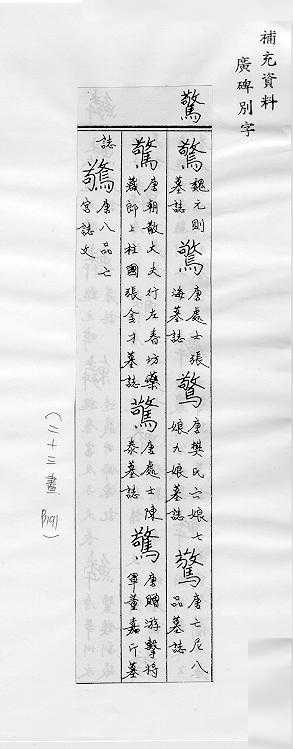 補充資料
廣碑別字
驚
驚魏元則墓誌驚唐處士張海墓誌驚唐樊氏六娘七娘九娘墓誌驚唐亡尼八品墓誌
驚唐朝散大夫行左春坊藥藏郎上柱國張金才墓誌驚唐處士陳泰墓誌驚唐贈游擊將軍董嘉斤墓
誌驚唐八品亡宮誌文
(二十三畫 P191)